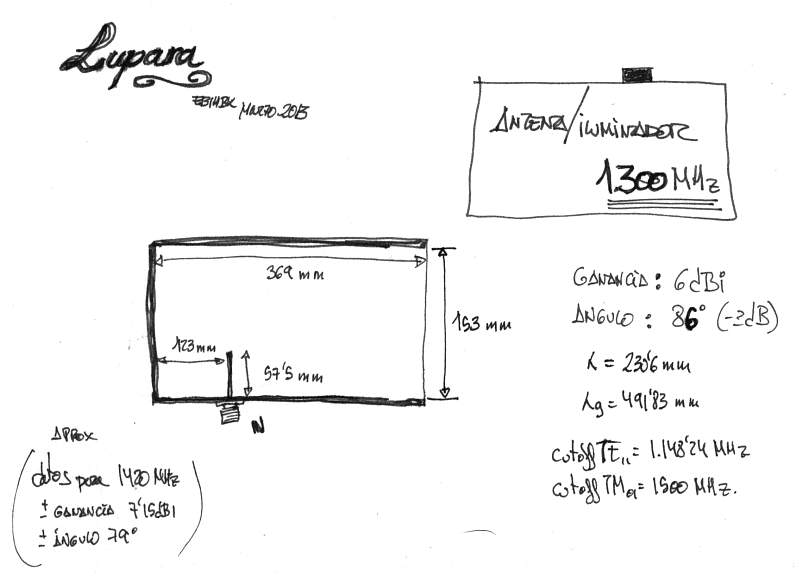 Lupara
MARZO-2013
ANTENA/ILUMINADOR
1.300 MHz
369 mm
153 mm
123 mm
57'5 mm
N
GANANCIA: 6dBi
ANGULO: 86° (-3dB)
λ = 230'6 mm
λg = 491'83 mm
cutoff TE11 = 1.148'24 MHz
cutoff TM01 = 1500 MHz.
APROX
datos para 1420 MHz
± GANANCIA 7'15dBI
± ÁNGULO 79°